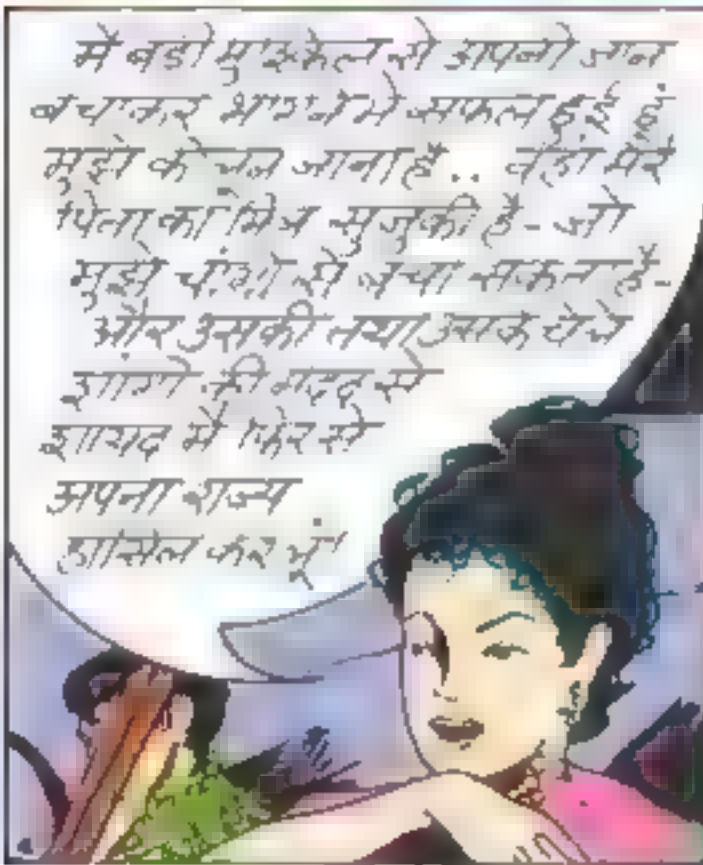 मैं बड़ी मुश्किल से अपनी जान
बचाकर भागने में सफल हुई हूं
मुझे जाना है.. वहां मेरे
पिता का मित्र सुजुकी है- जो
मुझे से बचा सकता है-
और उसकी तथा उसके
की मदद से
शायद मैं फिर से
अपना राज्य
हासिल कर लूं!